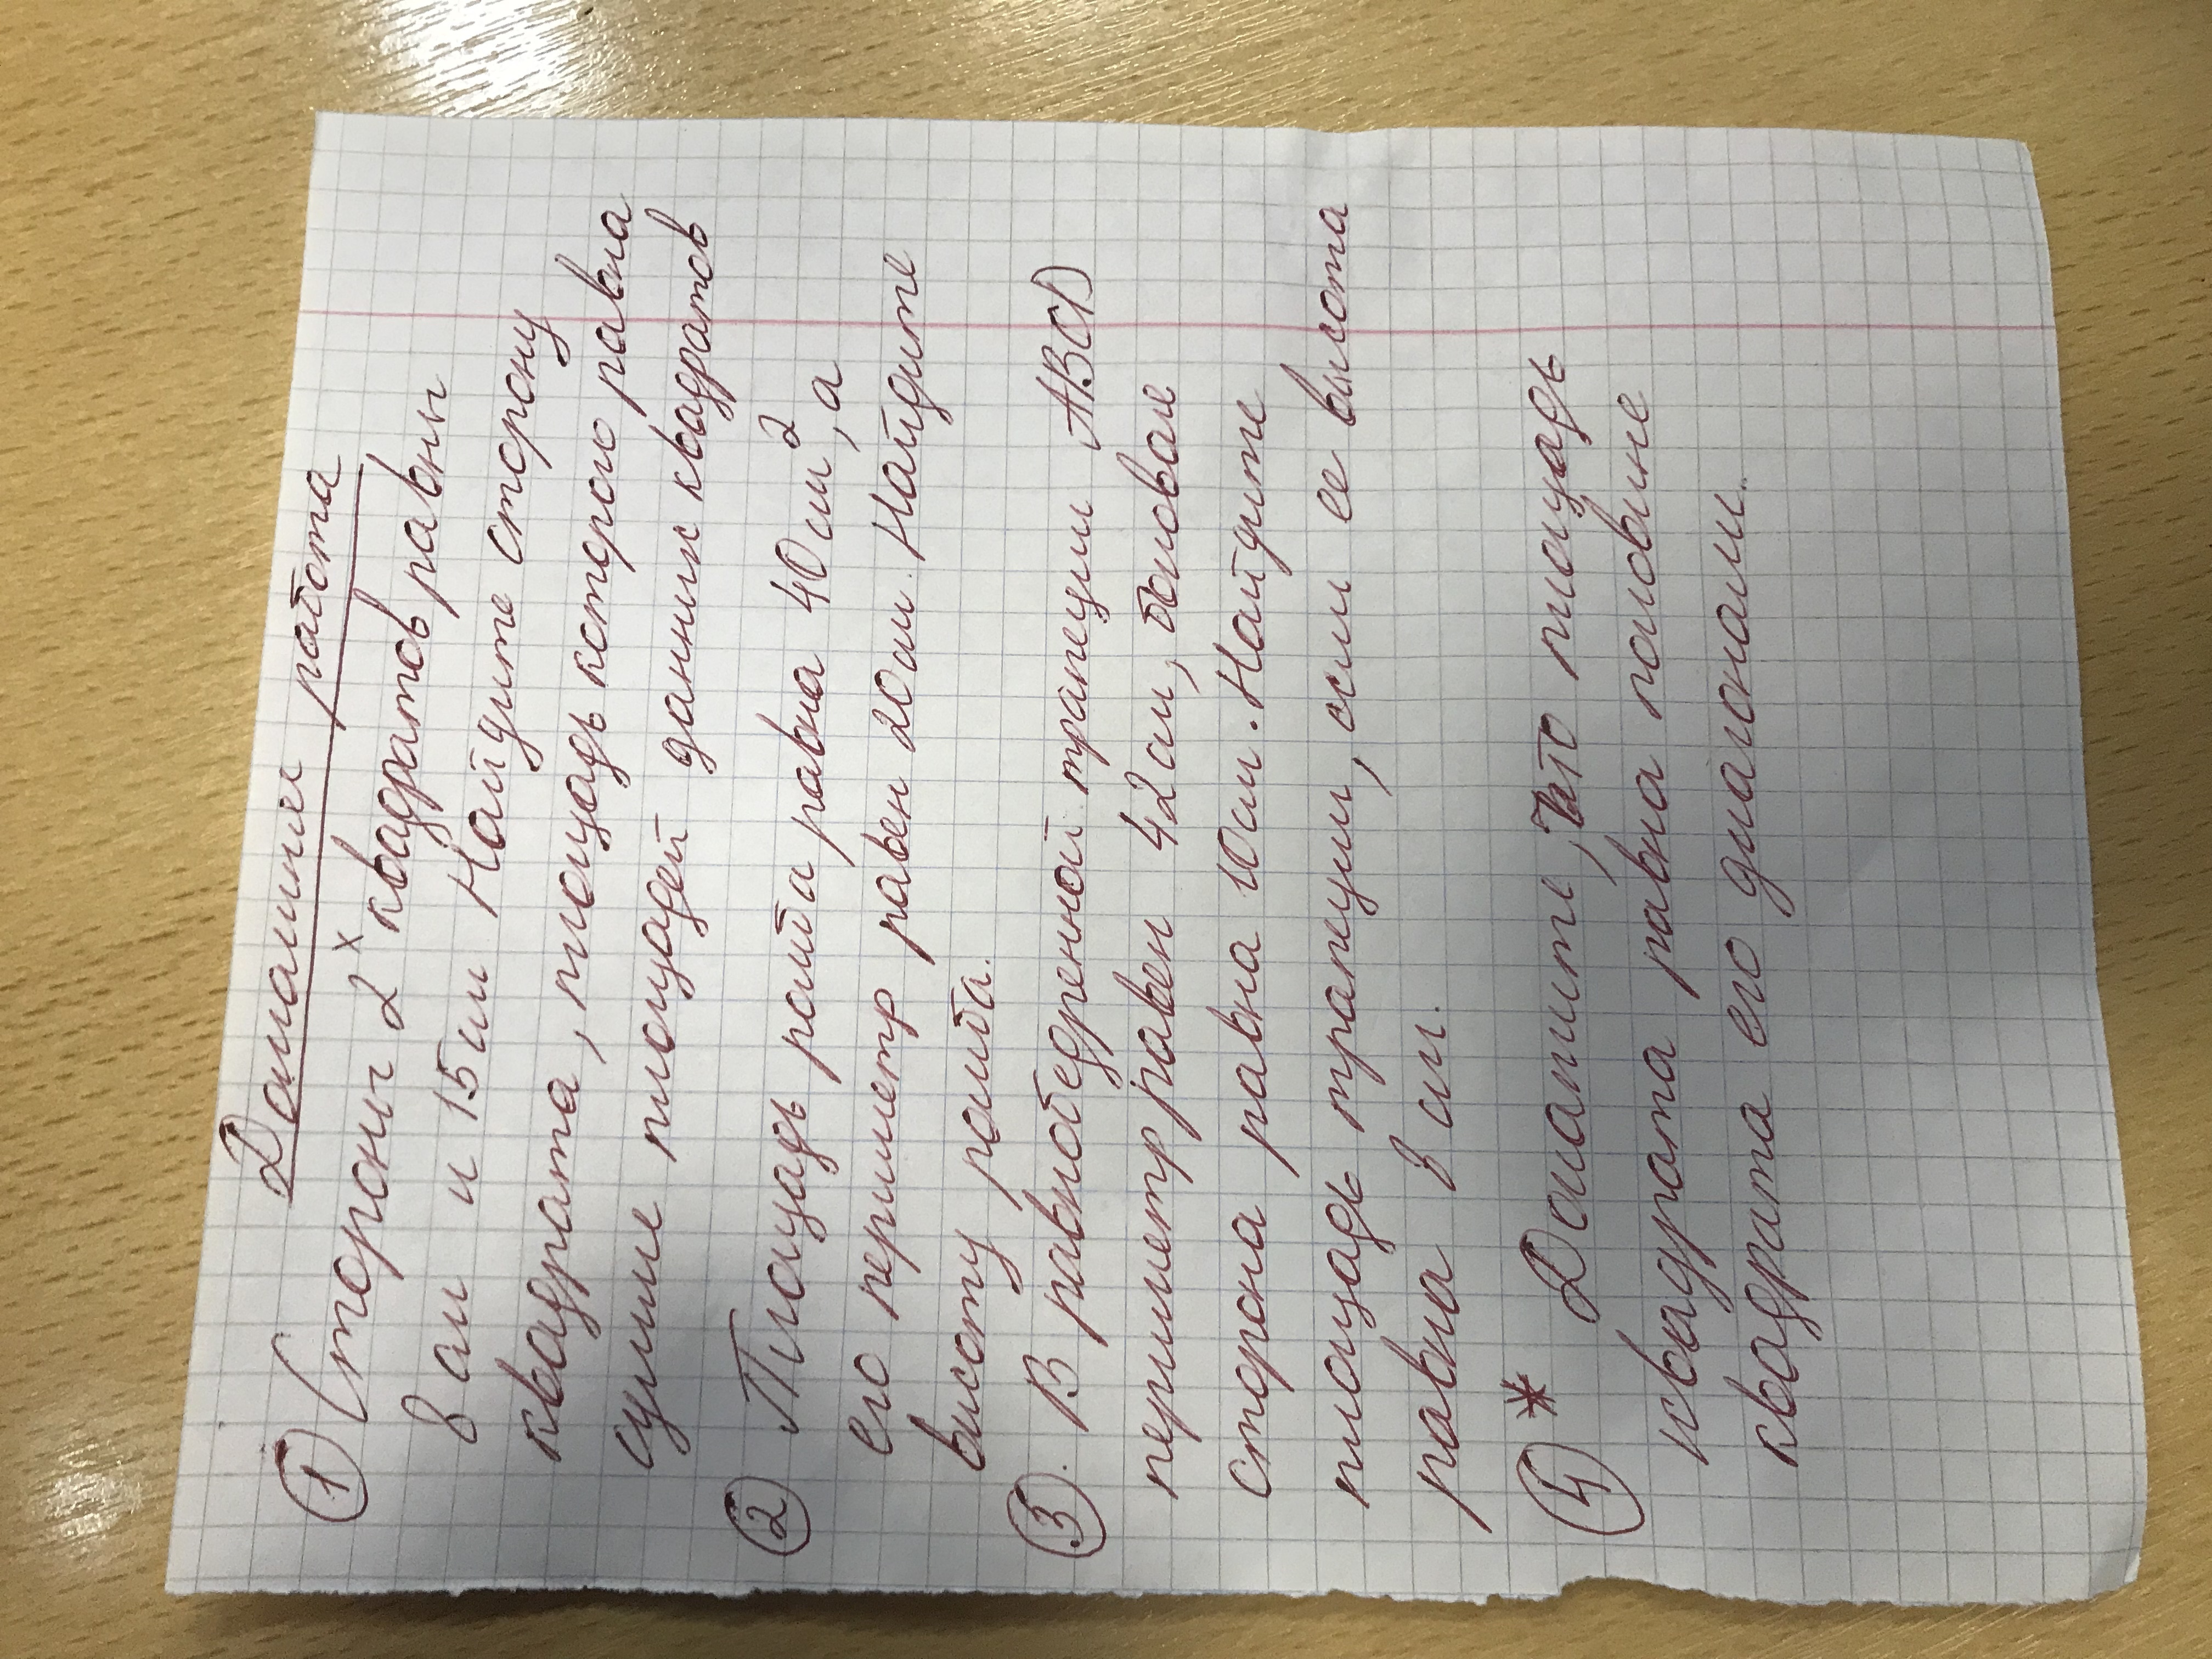 Домашняя работа
① Стороны 2ˣ квадратов равны
8 см и 15 см Найдите сторону
квадрата, площадь которого равна
сумме площадей данных квадратов
② Площадь ромба равна 40 см², а
его периметр равен 20 см. Найдите
высоту ромба.
③. В равнобедренной трапеции ABCD
периметр равен 42 см, боковая
сторона равна 10 см. Найдите
площадь трапеции, если ее высота
равна 8 см.
④* Докажите, что площадь
квадрата равна половине
квадрата его диагонали.